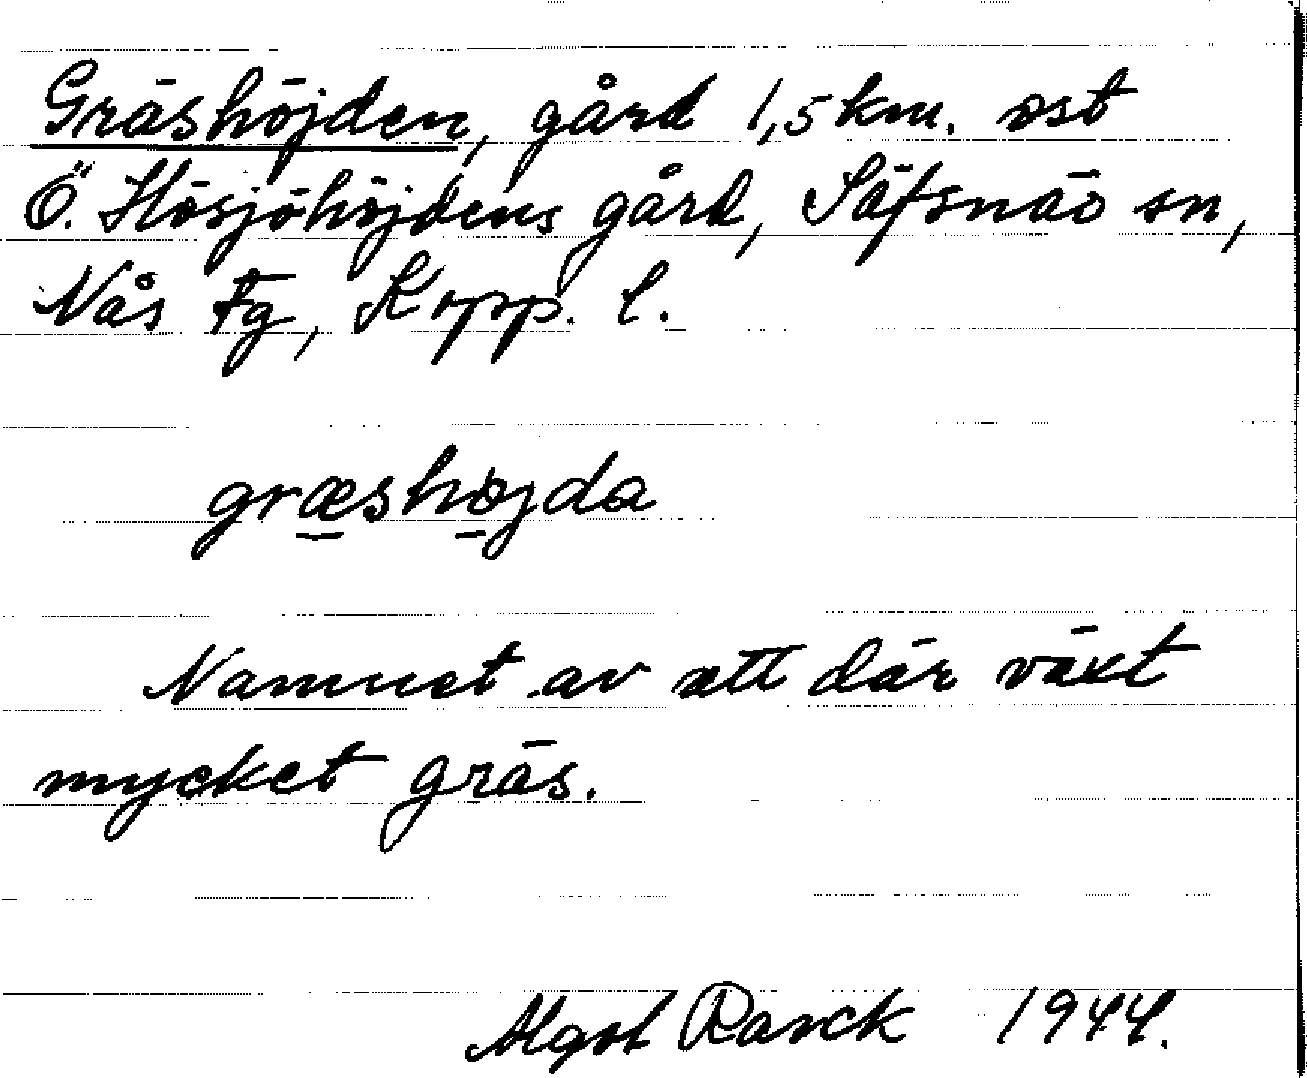 Gräshöjden, gård 1,5 km. ost
Ö. Hösjöhöjdens gård, Säfsnäs sn,
Nås Fg, Kopp. l.
græshøjda
Namnet av att där växt
mycket gräs.
Algot Ranck 1944.